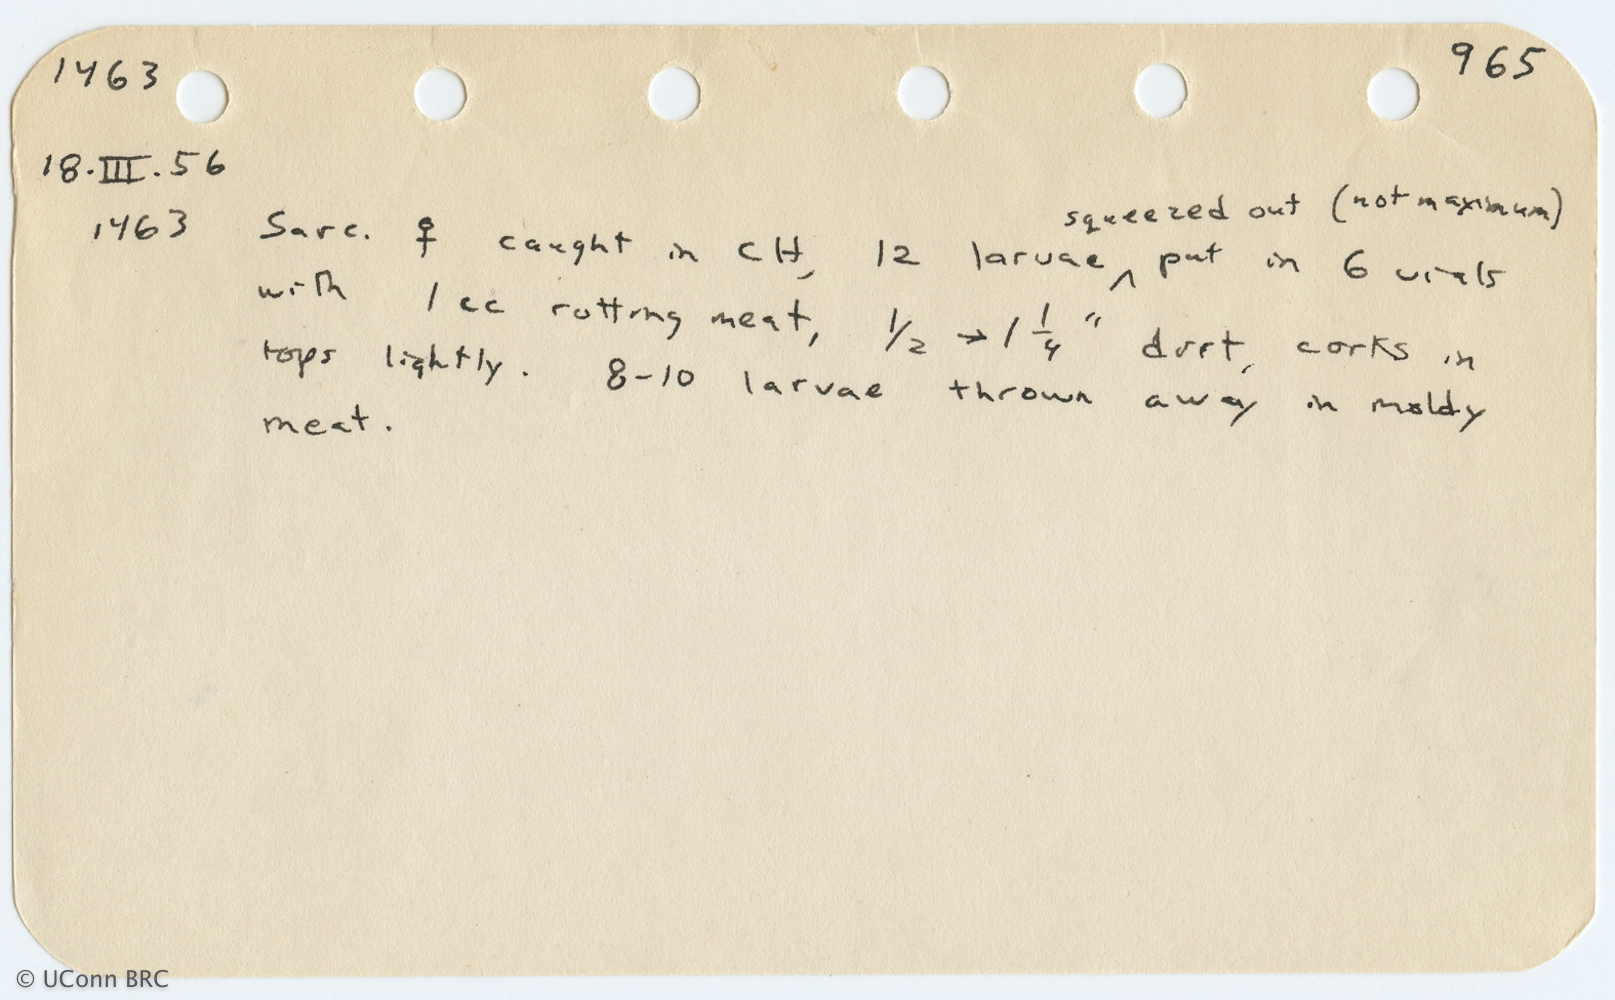 1463 965
18·III.56
squeezed out (not maximum)
1463 Sarc. ♀ caught in CH, 12 larvae ^ put in 6 vials
with 1 cc rotting meat, 1/2 → 1 1/4 " dirt, corks in
tops lightly. 8-10 larvae thrown away in moldy
meat.
© UConn BRC